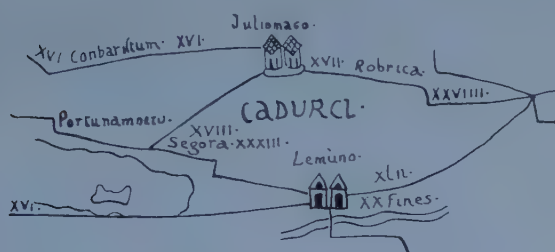 Juliomago.
XVI Conbaristum. XVI.
XVII Robrica.
XXVIIII.
CADURCI.
Portunamnetu.
XVIII.
Segora. XXXIII.
Lemuno.
XLII.
XX Fines.
XVI.